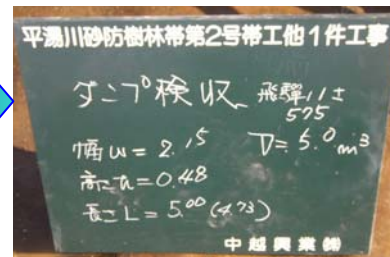 平湯川砂防樹林帯第2号帯工他1件工事
ダンプ検収 飛騨11 ±
575
幅 W = 2.15 V = 5.0 m³
高さ h = 0.48
長さ L = 5.00 (4.73)
中越興業㈱